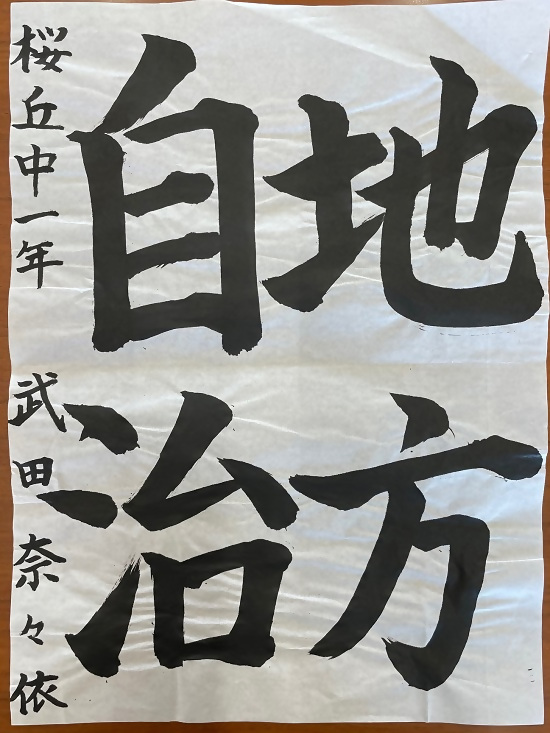 地方
自治
桜丘中一年 武田奈々依